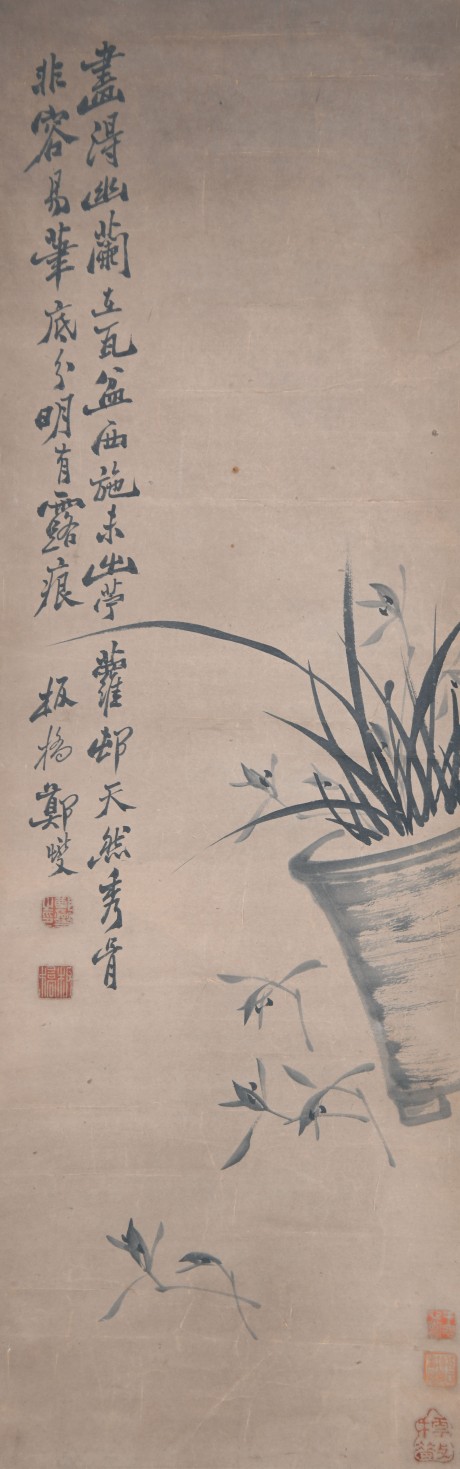 畫得幽蘭在瓦盆西施未出苧蘿邨天然秀骨
非容易筆底分明有露痕 板橋鄭燮